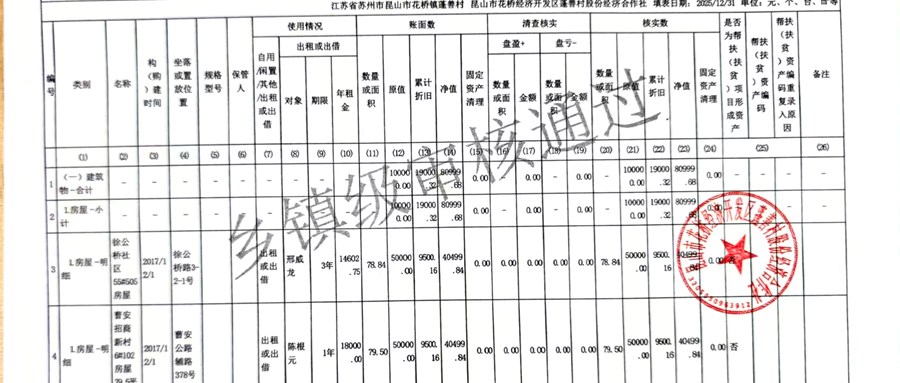 江苏省苏州市昆山市花桥镇蓬善村 昆山市花桥经济开发区蓬善村股份经济合作社 填表日期：2025/12/31 单位：元、个、台、亩等
编号 类别 名称 构（购）建时间 坐落或置放位置 规格型号 保管人 使用情况 账面数 清查核实 核实数 是否为帮扶（扶贫）项目形成资产 帮扶（扶贫）资产编码 帮扶（扶贫）资产编码重复录入原因 备注
自用/闲置/其他/出租或出借 出租或出借 数量或面积 原值 累计折旧 净值 固定资产清理 盘盈+ 盘亏- 数量或面积 原值 累计折旧 净值 固定资产清理
对象 期限 年租金 数量或面积 金额 数量或面积 金额
(1) (2) (3) (4) (5) (6) (7) (8) (9) (10) (11) (12) (13) (14) (15) (16) (17) (18) (19) (20) (21) (22) (23) (24) (25) (26)
1 （一）建筑物-合计 - - - - - - - - - - 100000.00 19000.32 80999.68 0.00 - - - - - 100000.00 19000.32 80999.68 0.00 - - -
2 1.房屋-小计 - - - - - - - - - - 100000.00 19000.32 80999.68 0.00 - - - - - 100000.00 19000.32 80999.68 0.00 - - -
3 1.房屋-明细 徐公桥社区55#505房屋 2017/12/1 徐公桥路3-2-1号 出租或出借 邢威龙 3年 14602.75 78.84 50000.00 9500.16 40499.84 0.00 0.00 0.00 0.00 0.00 78.84 50000.00 9500.16 40499.84 0.00 否
4 1.房屋-明细 曹安招商新村6#102房屋79.5平 2017/12/1 曹安公路辅路378号 出租或出借 陈根元 1年 18000.00 79.50 50000.00 9500.16 40499.84 0.00 0.00 0.00 0.00 0.00 79.50 50000.00 9500.16 40499.84 0.00 否
乡镇级审核通过